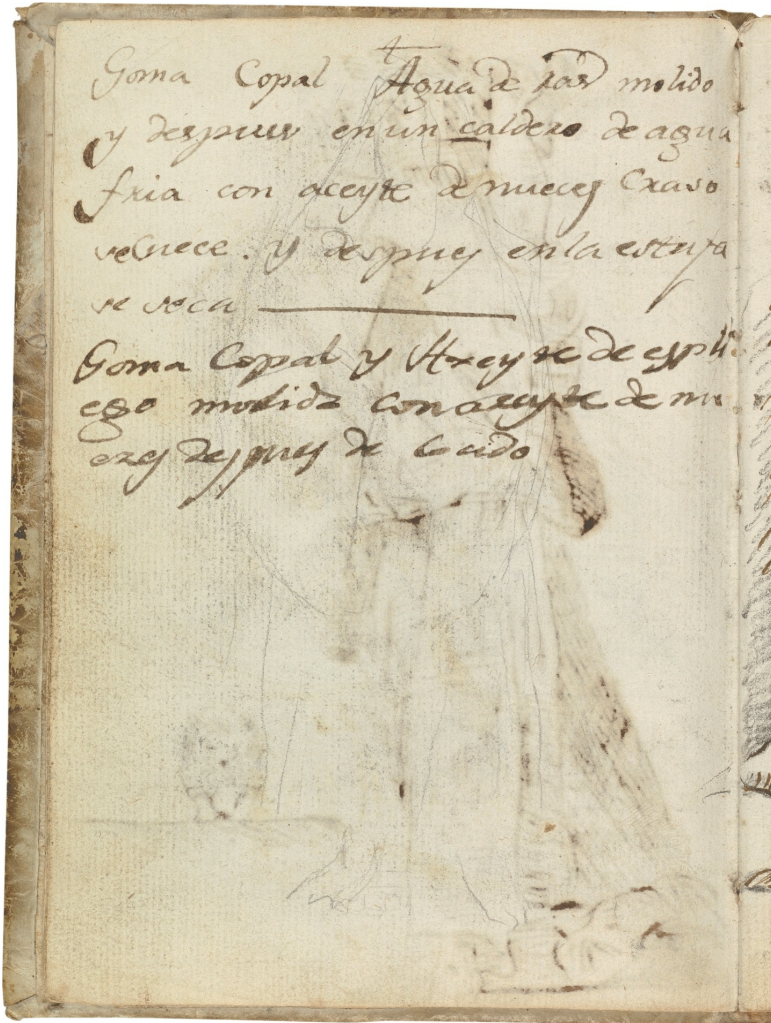 Goma Copal Agua de ras molido
y despues en un caldero de agua
fria con aceyte de nueces Craso
se cuece. y despues en la estufa
se seca
Goma Copal y Axeyte de espli
ego molido con aceyte de nu
ezes despues de Cocido